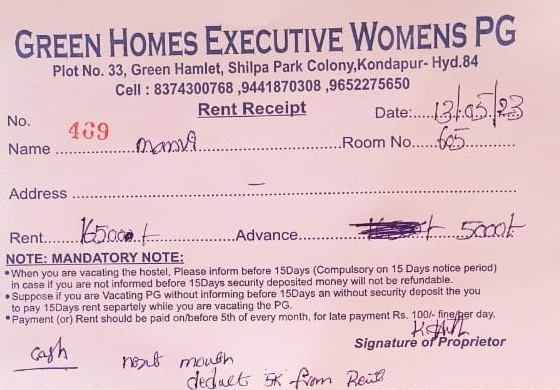 GREEN HOMES EXECUTIVE WOMENS PG
Plot No. 33, Green Hamlet, Shilpa Park Colony,Kondapur- Hyd.84
Cell : 8374300768 ,9441870308 ,9652275650
Rent Receipt
No. 469 Date:....13/05/23
Name ........ Room No.....605
Address
Rent...16500/- Advance........ 5000/-
NOTE: MANDATORY NOTE:
•When you are vacating the hostel, Please inform before 15Days (Compulsory on 15 Days notice period)
in case if you are not informed before 15Days security deposited money will not be refundable.
•Suppose if you are Vacating PG without informing before 15Days an without security deposit the you
to pay 15Days rent separtely while you are vacating the PG.
•Payment (or) Rent should be paid on/before 5th of every month, for late payment Rs. 100/- fine/per day.
Signature of Proprietor
Cash next month
deduct 5K from Rent